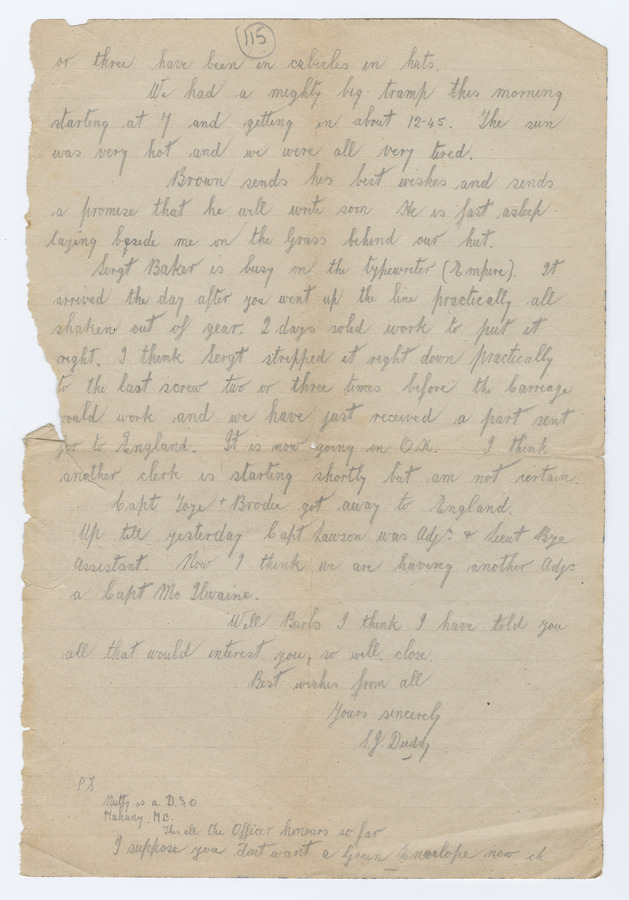 115
or three have been in cubicles in huts.
We had a mighty big tramp this morning
starting at 7 and getting in about 12-45. The sun
was very hot and we were all very tired.
Brown sends his best wishes and sends
a promise that he will write soon He is fast asleep
laying beside me on the Grass behind our hut.
Sergt Baker is busy on the typewriter (Empire). It
arrived the day after you went up the line practically all
shaken out of gear. 2 days solid work to put it
right. I think Sergt stripped it right down practically
to the last screw two or three times before the Carriage
would work and we have just received a part sent
for to England. It is now going on O.K. I think
another clerk is starting shortly but am not certain.
Capt Toye + Brodie got away to England.
Up till yesterday Capt Lawson was Adjt + Lieut Bye
Assistant. Now I think we are having another Adjt
a Capt Mc Ilwaine.
Well Burls I think I have told you
all that would interest you, so will close.
Best wishes from all
Yours sincerely
S.J. Duddy
P.S
Nutty is a D.S.O.
Mahany M.C.
This all the Officer honours so far
I suppose you dont want a Green Envelope now eh